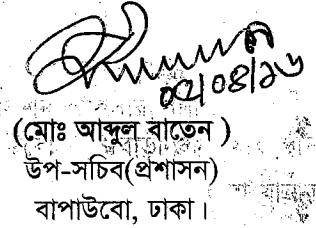 ০৫/০৪/১৬
(মোঃ আব্দুল বাতেন)
উপ-সচিব(প্রশাসন)
বাপাউবো, ঢাকা।